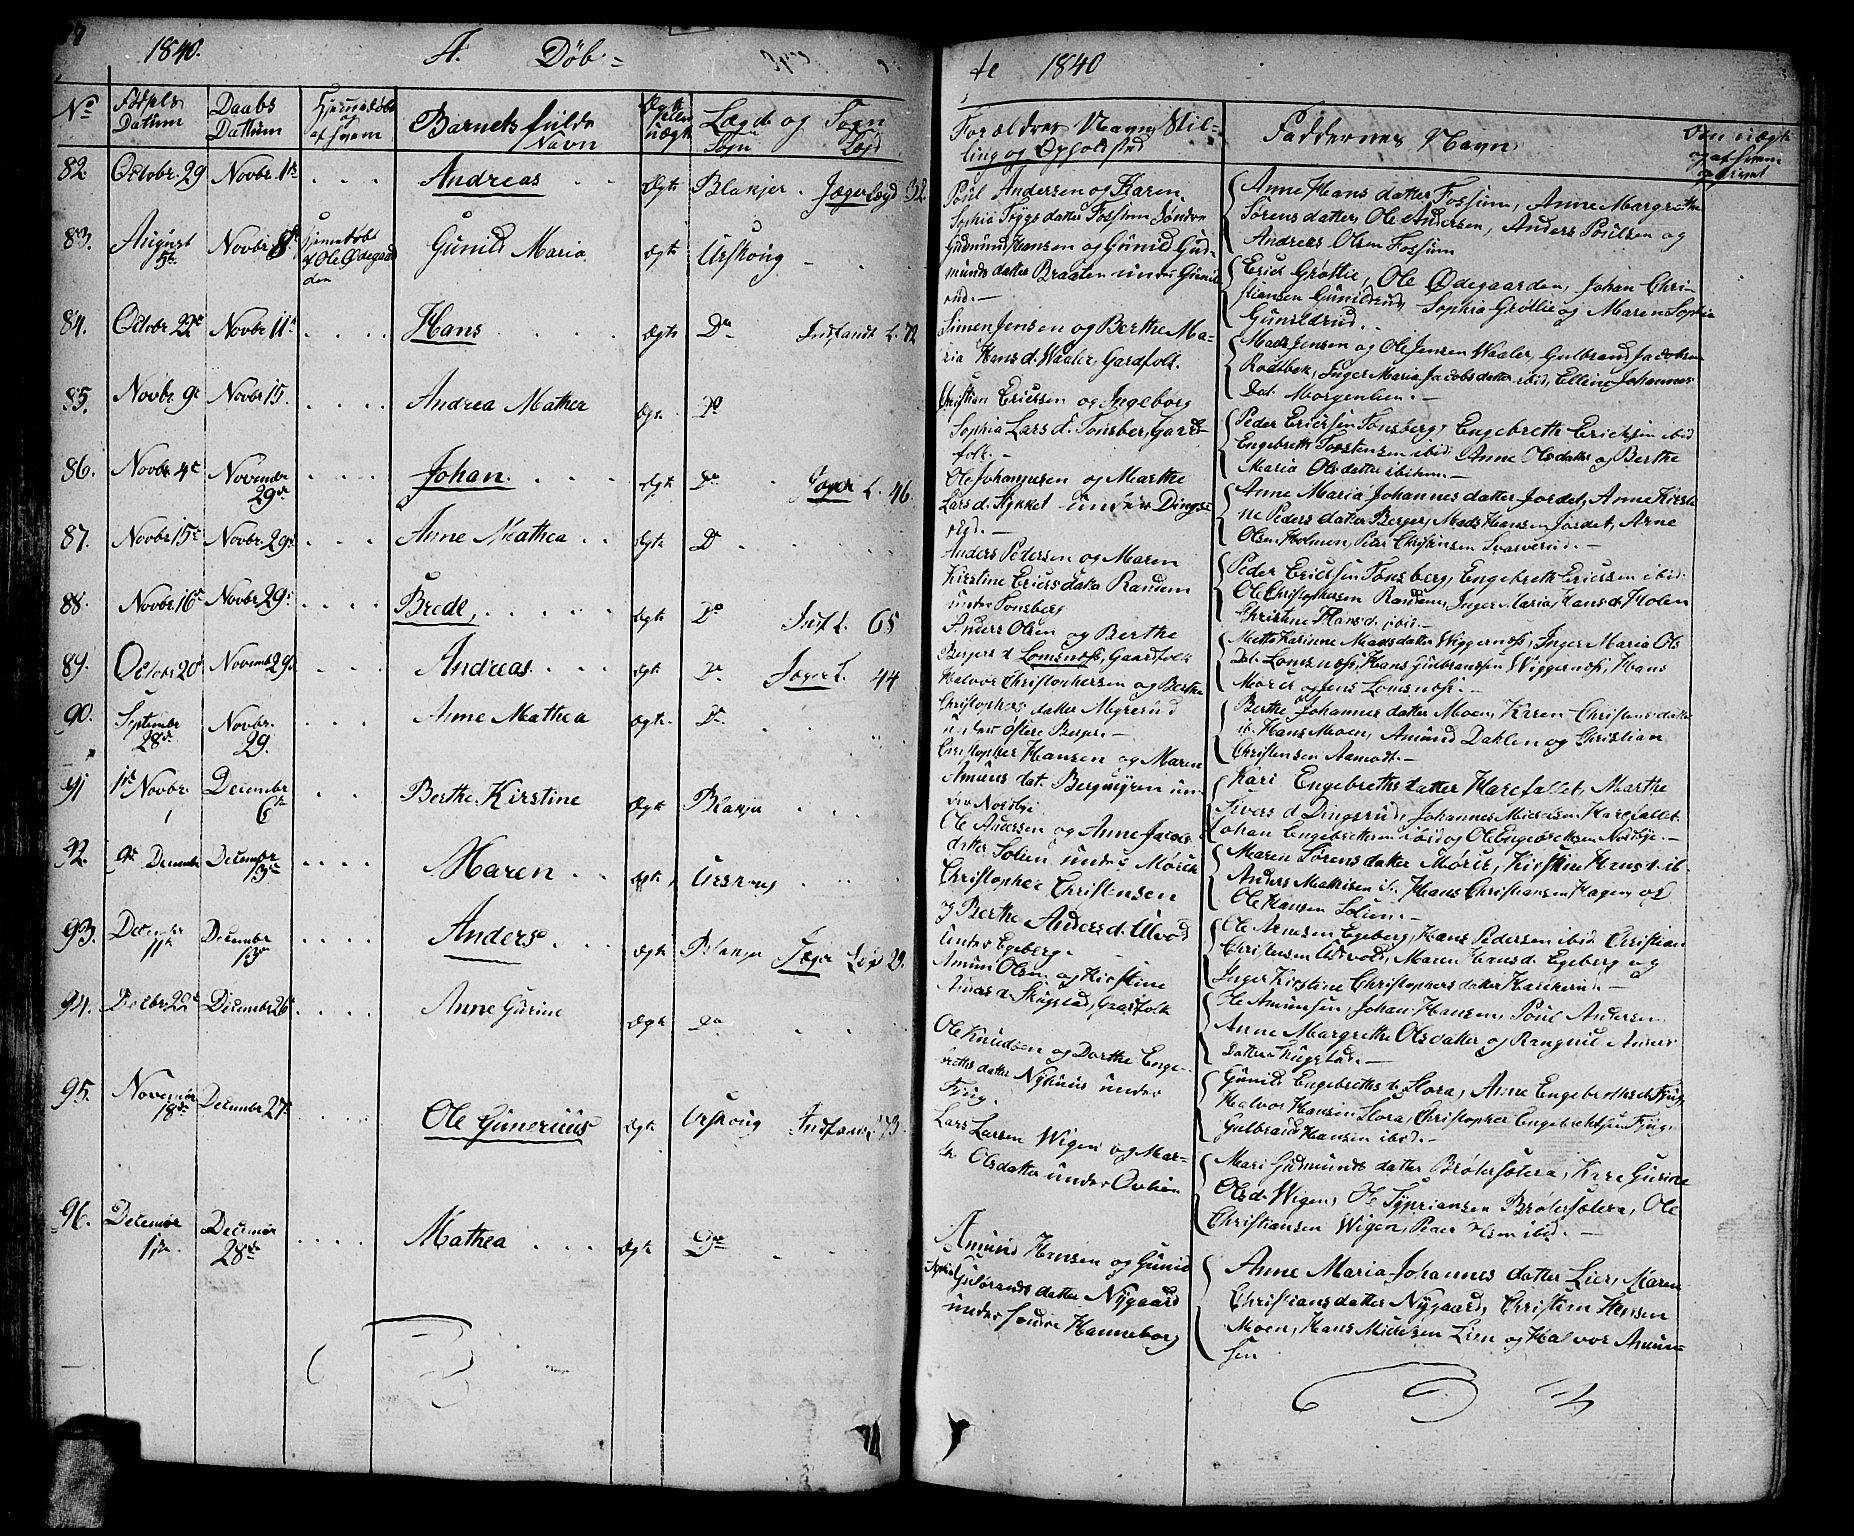 1840. A. Døb= te 1840
No Fødsels Datum Daabs Dattum Hjemmedøbt og af hvem Barnets fulde Navn Ægte eller uægte Lægds og Sogn
Forældres Navn, Stilling og Opholdsted Faddernes Navn Om uægte og af hvem
82. Octobr. 29 Novbr. 1ste Andreas Ægte Blakjer. Jægerlægd 32.
Poul Andersen og Karen
Sophia Tygesdatter Fossum Søndre
Anne Hansdatter Fossum, Anne Margrethe
Sørensdatter, Ole Andersen, Anders Poulsen og
Andreas Olsen Fossum
83. August 5te Novbr. 8de Hjemmedøbt af Ole Ødegaarden Gunild Maria Ægte Urskoug
Gudmund Hansen og Gunild Gudmundsdatter Braaten under Gunildrud.
Erich Grøttie, Ole Ødegaarden, Johan Christiansen Gunildrud, Sophia Grøttie og Maren Sophia
Gunildrud.
84. Octobr 22de Novbr. 11te Hans Ægte Do Indfandt L. 72
Simen Jensen og Berthe Maria Hans d. Waaler, Gardfolk.
Mads Jensen og Ole Jensen Waaler, Gulbrand Jacobsen
Rodtbek, Inger Maria Jacobsdatter ibid, Elline Johannes
Dat. Morgenlien.
85. Novbr. 9de Novbr. 15. Andrea Mathea Ægte Do
Christian Ericksen og Ingeborg
Sophia Lars d. Tonsber, Gardfolk.
Peder Ericksen Tonsberg, Engebreth Ericksen ibid
Engebreth Torstensen ibid, Anne Olsdatter og Berthe
Maria Olsdatter ibidem.
86. Novbr. 4de November 29de Johan. Ægte Do Jæger L. 46
Ole Johannesen og Marthe
Lars d. Stykket under Dingsrud.
Anne Maria Johannesdatter Jordet, Anne Kirstine Pedersdatter Berger, Mads Hansen Jordet, Arne
Olsen Holmen, Peder Christensen Svarverud.
87. Novbr. 15de Novbr. 29de Anne Mathea Ægte Do
Anders Pedersen og Maren
Kirstine Ericsdatter Randem
under Tonsberg
Peder Ericksen Tonsberg, Engebreth Ericksen ibid.
Ole Christophersen Randem, Inger Maria Hans d. Holen
Christine Hans d. ibid.
88. Novbr. 16de Novbr. 29. Brede, Ægte Do Indf L. 65
Anders Olsen og Berthe
Bergers d. Lomsnæss, Gaardfolk
Mette Karinne Madsdatter Wiggernæss, Inger Maria Ols
Dat. Lomsnæss, Hans Gulbransen Wiggernæss, Hans
Mørck og Jens Lomsnæss.
89. Octobr. 20de Novemb 29de Andreas Ægte Do Jæger L. 44
Halvor Christophersen og Berthe
Christophersdatter Myrerud
under Østere Berger.
Berthe Johannesdatter Moen, Karen Christensdatter
ib. Hans Moen, Amund Dahlen og Christian
Christensen Aamodt.
90. September 28de Novbr. 29. Anne Mathea Ægte Do
Christopher Hansen og Maren
Amunsdat. Bergmyren under Nordbye
Kari Engebrethsdatter Harefallet, Marthe
Sivers d Dingsrud, Johannes Mickelsen Harefallet
Johan Engebrethsen ibid og Ole Engebrethsen Nordbye.
91 1ste Novbr. 1 December 6te Berthe Kirstine Ægte Blakjer
Ole Andersen og Anne Jacobsdatter Solien under Mørck
Maren Sørensdatter Mørck, Kirstine Hans d. ib.
Anders Mathisen ib. Hans Christiansen Hagen, og
Ole Hansen Solien.
92. 9de December December 13de Maren Ægte Urskoug
Christopher Christensen
og Berthe Anders d. Ulvod
under Egeberg.
Ole Arnesen Egeberg, Hans Pedersen ibid Christian
Christensen Ulvod, Maren Hans d. Egeberg og
Inger Kirstine Christophersdatter
93. December 11te December 13de Anders Ægte Blakjer Jæger Lægd 29.
Amun Olsen og Kirstine
Anders d. Skugstad, Gardfolk
Ole Amunsen, Johan Hansen, Poul Andersen
Anne Margrethe Olsdatter og Rangnil Anders
Datter Skugstad.
94. Decbr 22de December 26de Anne Gurine Ægte Do
Ole Knudsen og Dorthe Engebrethsdatter Nyhuus under
Fjug.
Gunild Engebreths d. Slora, Anne Engebreths d. Fjug
Halvor Hansen Slora, Christopher Engebrethsen Fjug.
Gulbrand Hansen ibid.
95. November 18de December 27de Ole Gunerius Ægte Urskoug Indfandt 73.
Lars Larsen Wigen og Marthe Olsdatter under Ovlien
Mari Gudmundsdatter Brøtersetera, Kari Gurine
Ols d. Wigen, Ole Typriansen Brøtersetera, Ole
Christiansen Wigen, Peder Olsen ibid.
96. December 11te December 28de Mathea Ægte Do
Amund Hansen og Gunild
Sophia Gulbrandsdatter Nygaard
under søndre Hanneborg
Anne Maria Johannesdatter Lier, Maren
Christiansdatter Nygaard, Christian Hansen
Moen, Hans Mickelsen Lien og Halvor Amundsen